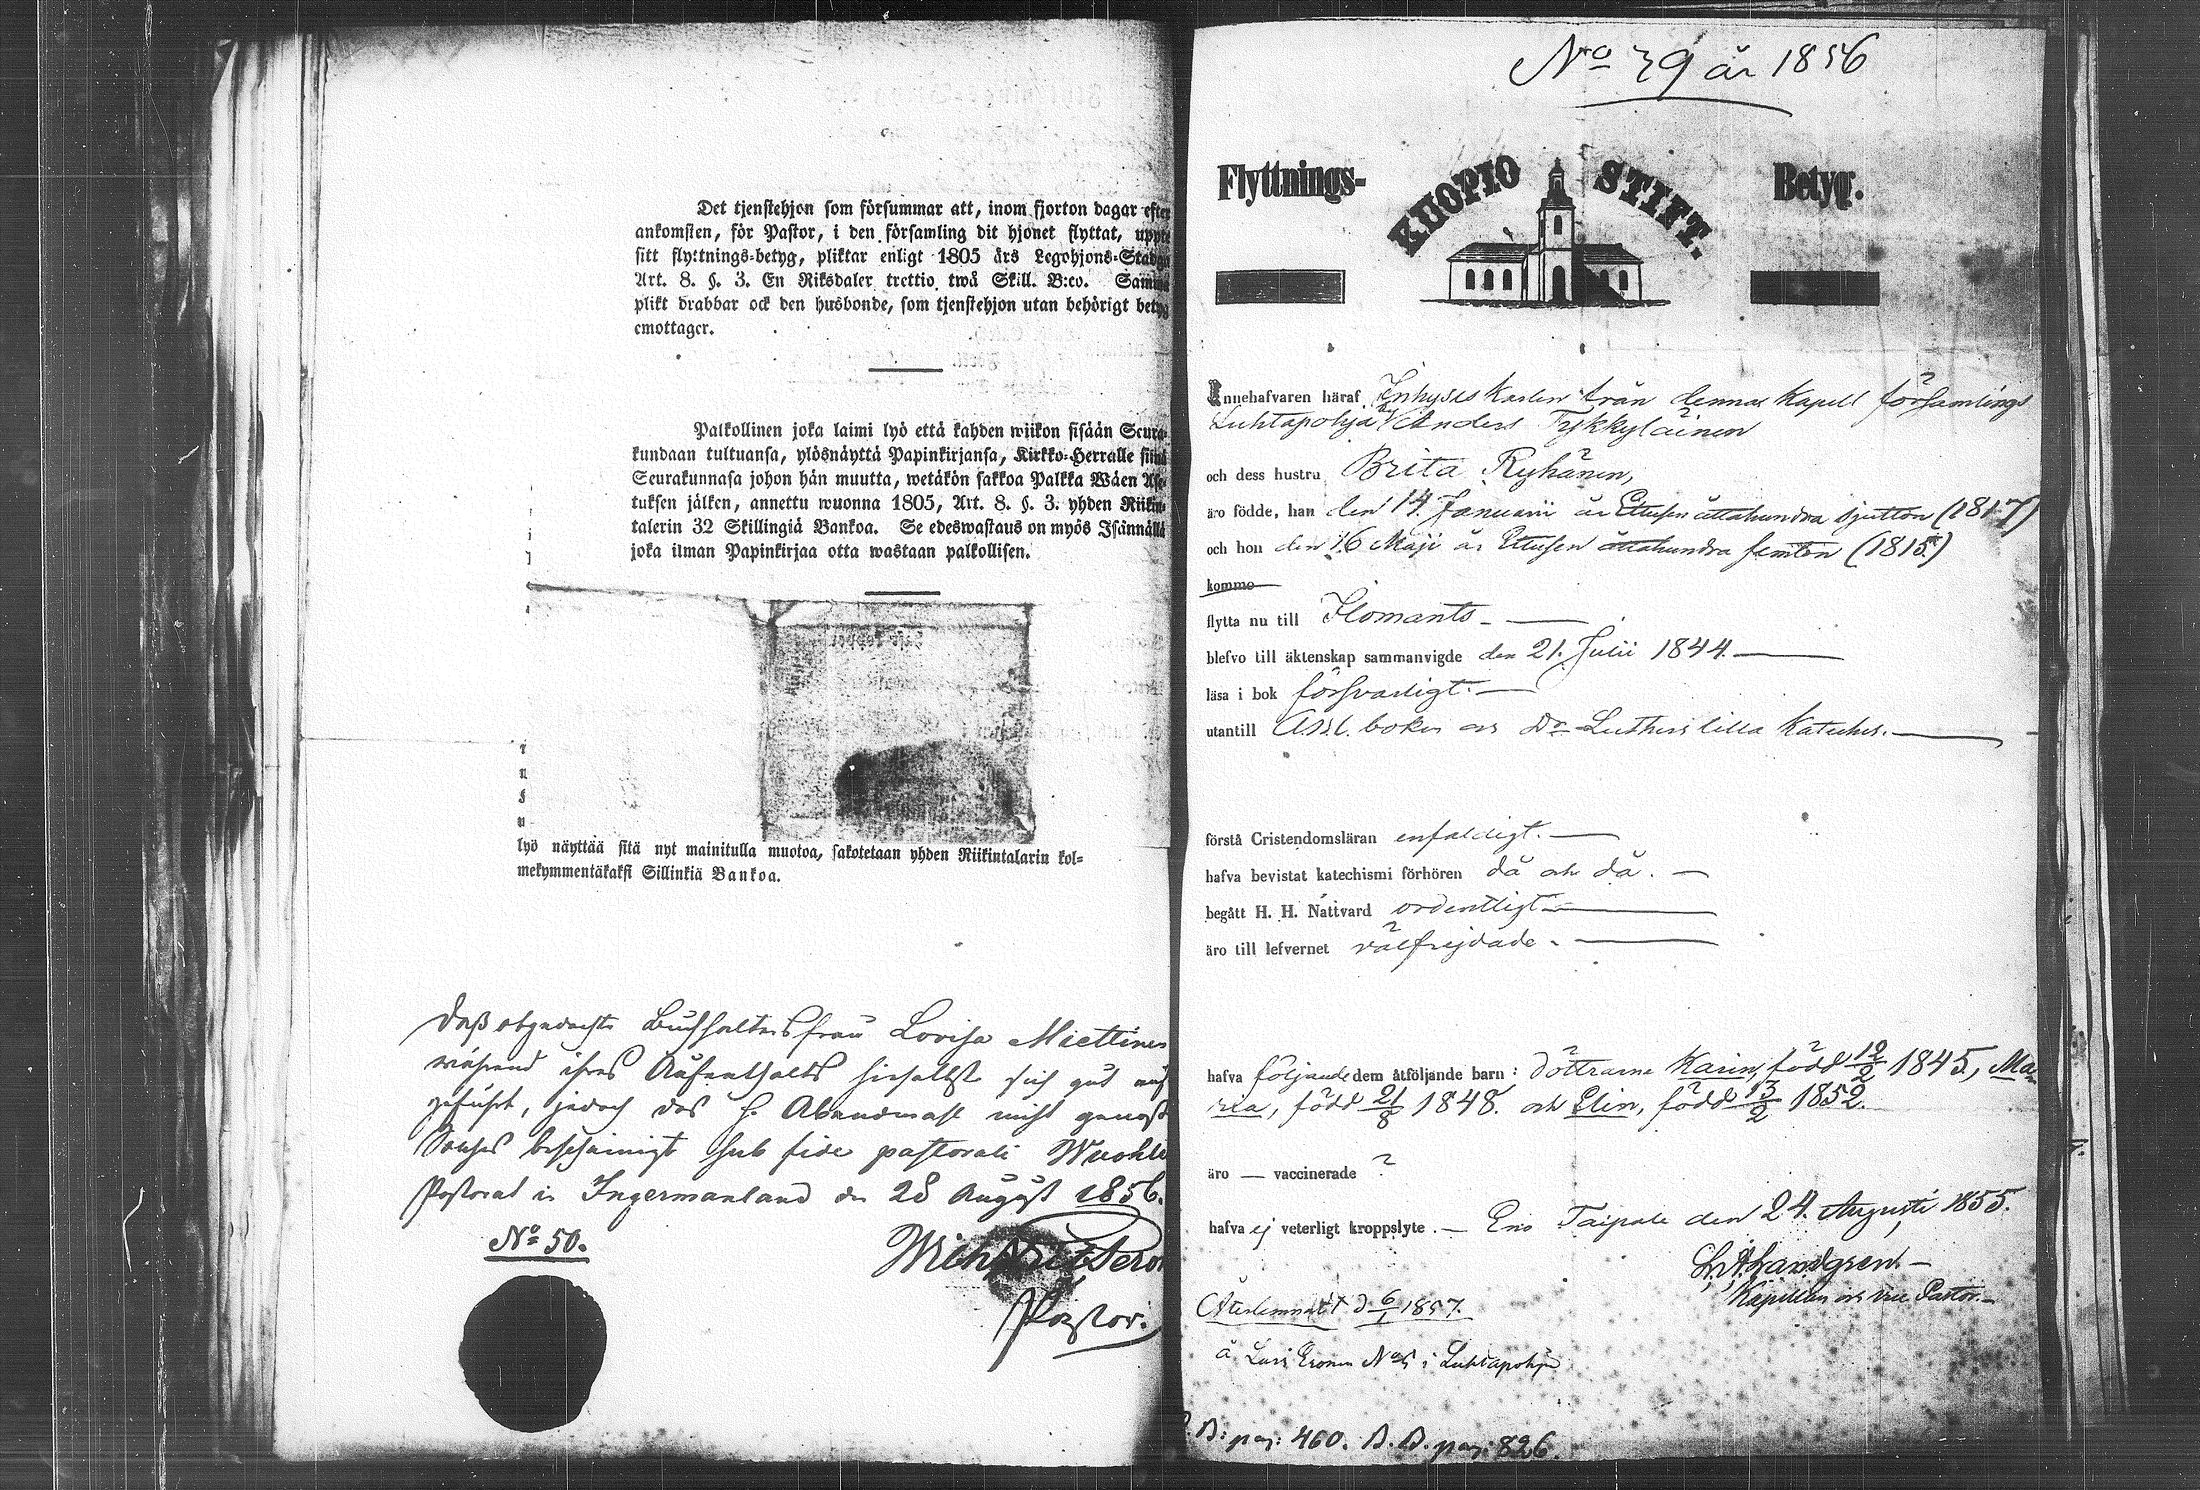 Det tjenstehjon som försummar att, inom fjorton dagar efter
ankomsten, för Pastor, i den församling dit hjonet flyttat, uppte
sitt flyttnings-betyg, pliktar enligt 1805 års Legohjons-Stadga
Art. 8. §. 3. En Riksdaler trettio två Skill. B:co. Samma
plikt drabbar ock den husbonde, som tjenstehjon utan behörigt betyg
emottager.
Palkollinen joka laimi lyö että kahden wiikon sisään Seura-
kundaan tultuansa, ylösnäyttä Papinkirjansa, Kirkko-Herralle siinä
Seurakunnasa johon hän muutta, wetäkön sakkoa Palkka Wäen Ase-
tuksen jälken, annettu wuonna 1805, Art. 8. §. 3. yhden Riikin-
talerin 32 Skillingiä Bankoa. Se edeswastaus on myös Isännällä
joka ilman Papinkirjaa otta wastaan palkollisen.
lyö näyttää sitä nyt mainitulla muotoa, sakotetaan yhden Riikintalarin kol-
mekymmentäkaksi Sillinkiä Bankoa.
Daß obgedachte Buchhaltersfrau Lovisa Miettinen
während ihres Aufenthalts hieselbst sich gut auf
geführt, jedoch das H. Abendmahl nicht genoss
Solches bescheinigt sub fide pastorali Wuohle
Pastorat in Ingermanland den 28 August 1856.
No 50.
Pastor.
No 39 år 1856
Flyttnings- KUOPIO STIFT. Betyg.
Innehafvaren häraf Inhyses Karlen från denna Kapell församlings
Luhtapohja Anders Tykkyläinen
och dess hustru Brita Ryhänen,
äro födde, han den 14 Januarii år Ettusen åttahundra sjutton (1817)
och hon den 16 Maji år Ettusen åttahundra femton (1815.)
komme
flytta nu till Ilomants
blefvo till äktenskap sammanvigde den 21. Julii 1844.
läsa i bok försvarligt.
utantill A.B.C. boken och Dr Luthers lilla Kateches.
förstå Cristendomsläran enfaldigt.
hafva bevistat katechismi förhören då och då.
begått H. H. Nattvard ordentligt
äro till lefvernet välfrejdade.
hafva följande dem åtföljande barn: döttrarne Karin, född 12/2 1845, Ma-
ria, född 21/8 1848. och Elin, född 13/2 1852.
äro — vaccinerade ?
hafva ej veterligt kroppslyte. — Eno Taipale den 24. Augusti 1855.
Landgren.
Kapellan och vice Pastor.
Återlemnat d. 6/1 1857.
å Lars Eronen No 5 i Luhtapohja
B: pag: 460. B. B. pag: 826